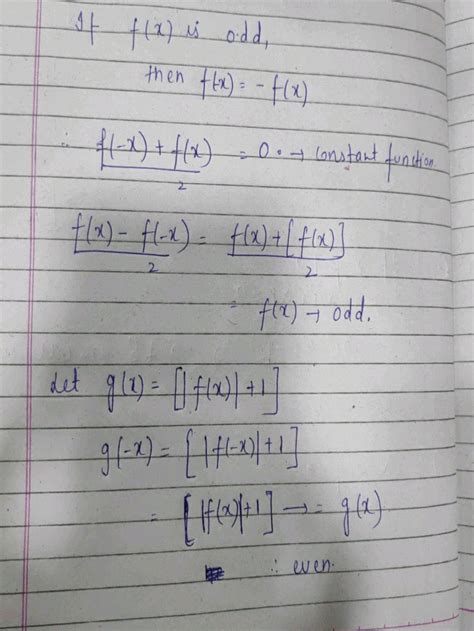 If f(x) is odd,
then f(-x) = - f(x)
∴ f(-x) + f(x) / 2 = 0. → constant function.
f(x) - f(-x) / 2 = f(x) + [f(x)] / 2
= f(x) → odd.
Let g(x) = [|f(x)| + 1]
g(-x) = [|f(-x)| + 1]
= [|f(x)| + 1] → = g(x)
∴ even.